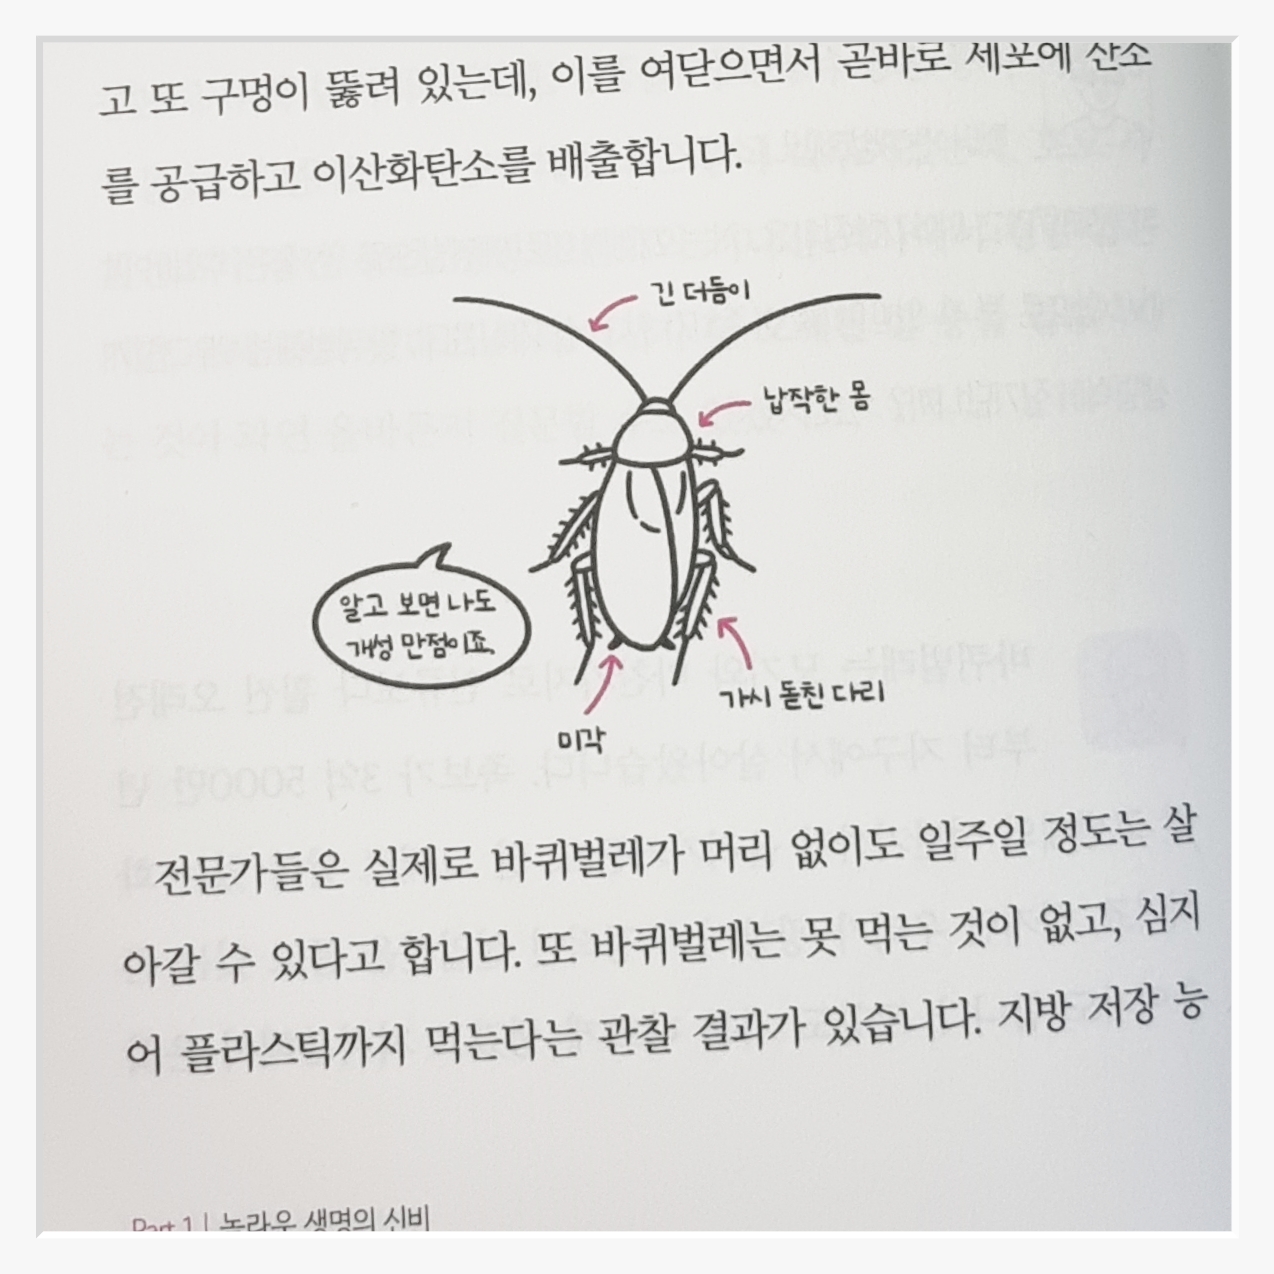 고 또 구멍이 뚫려 있는데, 이를 여닫으면서 곧바로 세포에 산소
를 공급하고 이산화탄소를 배출합니다.
긴 더듬이
납작한 몸
알고 보면 나도
개성 만점이죠.
가시 돋친 다리
미각
전문가들은 실제로 바퀴벌레가 머리 없이도 일주일 정도는 살
아갈 수 있다고 합니다. 또 바퀴벌레는 못 먹는 것이 없고, 심지
어 플라스틱까지 먹는다는 관찰 결과가 있습니다. 지방 저장 능
Part 1 | 놀라운 생명의 신비